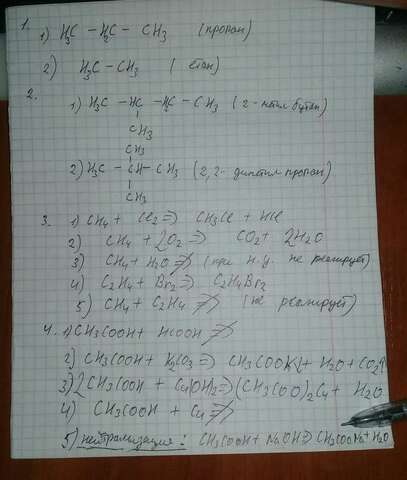 1.
1) H₃C – H₂C – CH3 (пропан)
2) H₃C – CH3 (етан)
2.
1) H₃C – HC – H₂C – CH3 (2-метил бутан)
CH3
CH3
2) H₃C – CH – CH3 (2,2-диметил пропан)
CH3
3. 1) CH4 + Cl2 => CH3Cl + HCl
2) CH4 + 2O2 => CO2 + 2H2O
3) CH4 + H2O ≠> (при н.у. не реагирует)
4) C2H4 + Br2 => C2H4Br2
5) CH4 + C2H4 ≠> (не реагирует)
4. 1) CH3COOH + HCOOH ≠>
2) CH3COOH + K2CO3 => CH3COOK + H2O + CO2↑
3) 2CH3COOH + Cu(OH)2 => (CH3COO)2Cu + H2O
4) CH3COOH + Cu ≠>
5) нейтрализация: CH3COOH + NaOH => CH3COONa + H2O